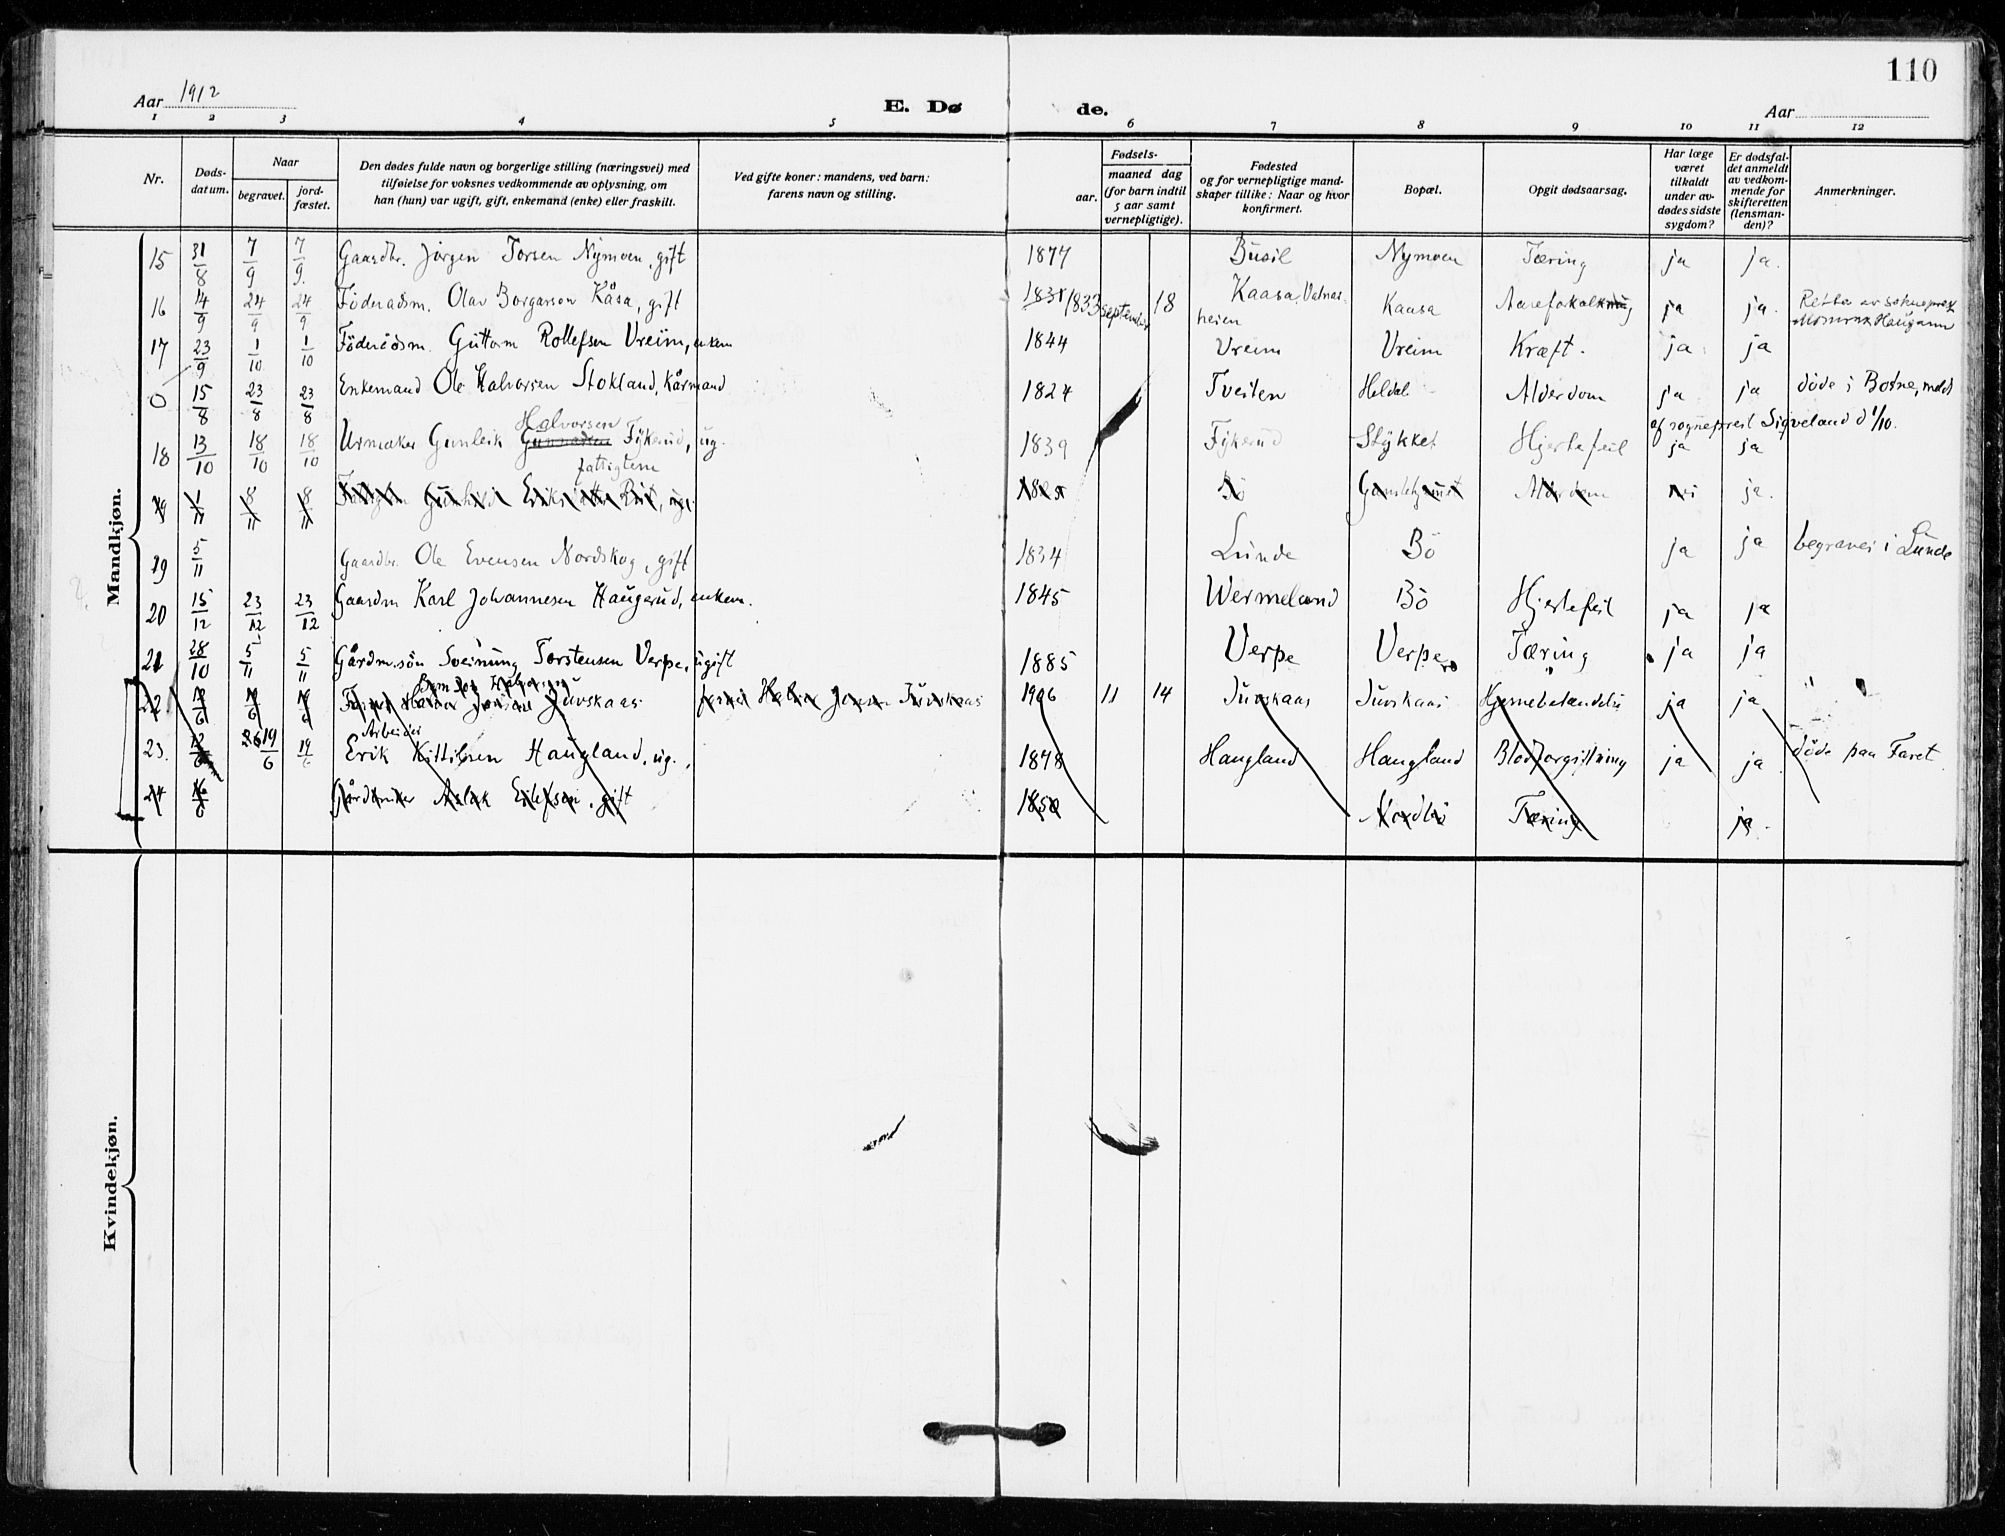 110
Aar 1912
E. Dø de.
Aar
1 2 3 4 5 6 7 8 9 10 11 12
Nr.
Døds-datum.
Naar
begravet.
jord-fæstet.
Den dødes fulde navn og borgerlige stilling (næringsvei) med
tilføielse for voksnes vedkommende av oplysning, om
han (hun) var ugift, gift, enkemand (enke) eller fraskilt.
Ved gifte koner: mandens, ved barn:
farens navn og stilling.
Fødsels-
aar.
maaned dag
(for barn indtil
5 aar samt
vernepligtige).
Fødested
og for vernepligtige mand-
skaper tillike: Naar og hvor
konfirmert.
Bopæl.
Opgit dødsaarsag.
Har læge
været
tilkaldt
under av-
dødes sidste
sygdom?
Er dødsfal-
det anmeldt
av vedkom-
mende for
skifteretten
(lensman-
den)?
Anmerkninger.
Mandkjøn.
15 31/8 7/9 7/9. Gaardbr. Jörgen Torsen Nymoen, gift 1877 Busil Nymoen Tæring ja ja.
16 14/9 24/9 24/9 Föderaadsm. Olav Borgarson Kåsa, gift 1831/1833 September 18 Kaasa, Vatnar-
heien Kaasa Aareforkalkning ja ja. Rettet av sokneprest
Haugann
17 23/9 1/10 1/10 Föderådsm. Guttorm Rollefsen Vreim, enkem 1844 Vreim Vreim Kræft. ja ja
0 15/8 23/8 23/8 Enkemand Ole Halvorsen Stokland, kårmand 1824 Tveiten Heldal Alderdom ja ja döde i Botne, meldt
af sognepresil Sigveland d 1/10.
Halvorsen
18 13/10 18/10 18/10 Urmaker Gunleik Gunnarsen Fykerud, ug. 1839 Fykerud Stykket Hjertefeil ja ja
fattiglem
19 1/11 8/11 8/11 Gunhild ug. Bö Alderdom nei ja.
19 5/11 Gaardbr. Ole Evensen Nordskog, gift 1834 Lunde Bö ja ja begraves i Lunde
20 15/12 23/12 23/12 Gaardm Karl Johannesen Haugerud, enkem. 1845 Wermeland Bö Hjertefeil ja ja
21 28/10 5/11 5/11 Gårdm.sön Sveinung Torstensen Verpe, ugift 1885 Verpe Verpe Tæring ja ja
22 Juvskaas Juvskaas 1906 11 14 Juvskaas Juvskaas Hjernebetændelse ja ja
Arbeider
23. 12/6 19/6 19/6 Erik Kittilsen Haugland, ug. 1878 Haugland Haugland Blodforgiftning ja ja døde paa Faret
24 16/6 Gårdbruker Aslak Eilefsen, gift 1850 Nordbö Tæring ja.
Kvindekjøn.